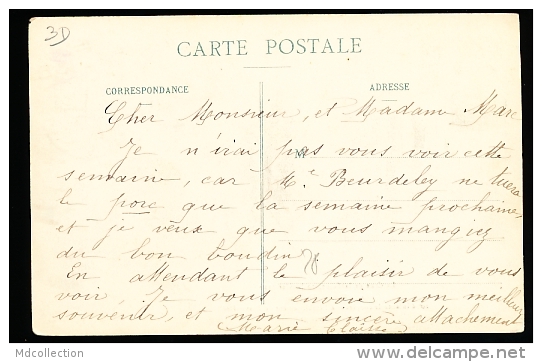 3D
CARTE POSTALE
CORRESPONDANCE
ADRESSE
Cher Monsieur, et Madame Marc
Je n'irai pas vous voir cette
semaine, car Mr Beurdeley ne tuera
le porc que la semaine prochaine,
et je veux que vous mangiez
du bon boudin
En attendant le plaisir de vous
voir, Je vous envoie mon meilleur
souvenir, et mon sincère attachement
Mdcollection
http://www.delcampe.net